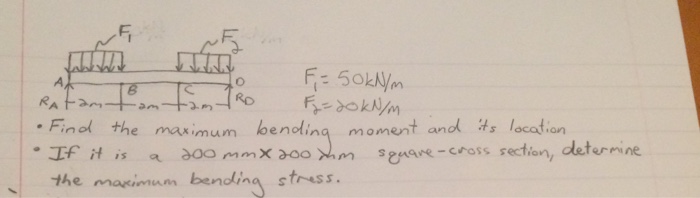 F₁ F₂
A B C D
R_A 2m 2m 2m R_D
F₁ = 50kN/m
F₂ = 20kN/m
• Find the maximum bending moment and its location
• If it is a 200 mm x 200 mm square-cross section, determine
the maximum bending stress.